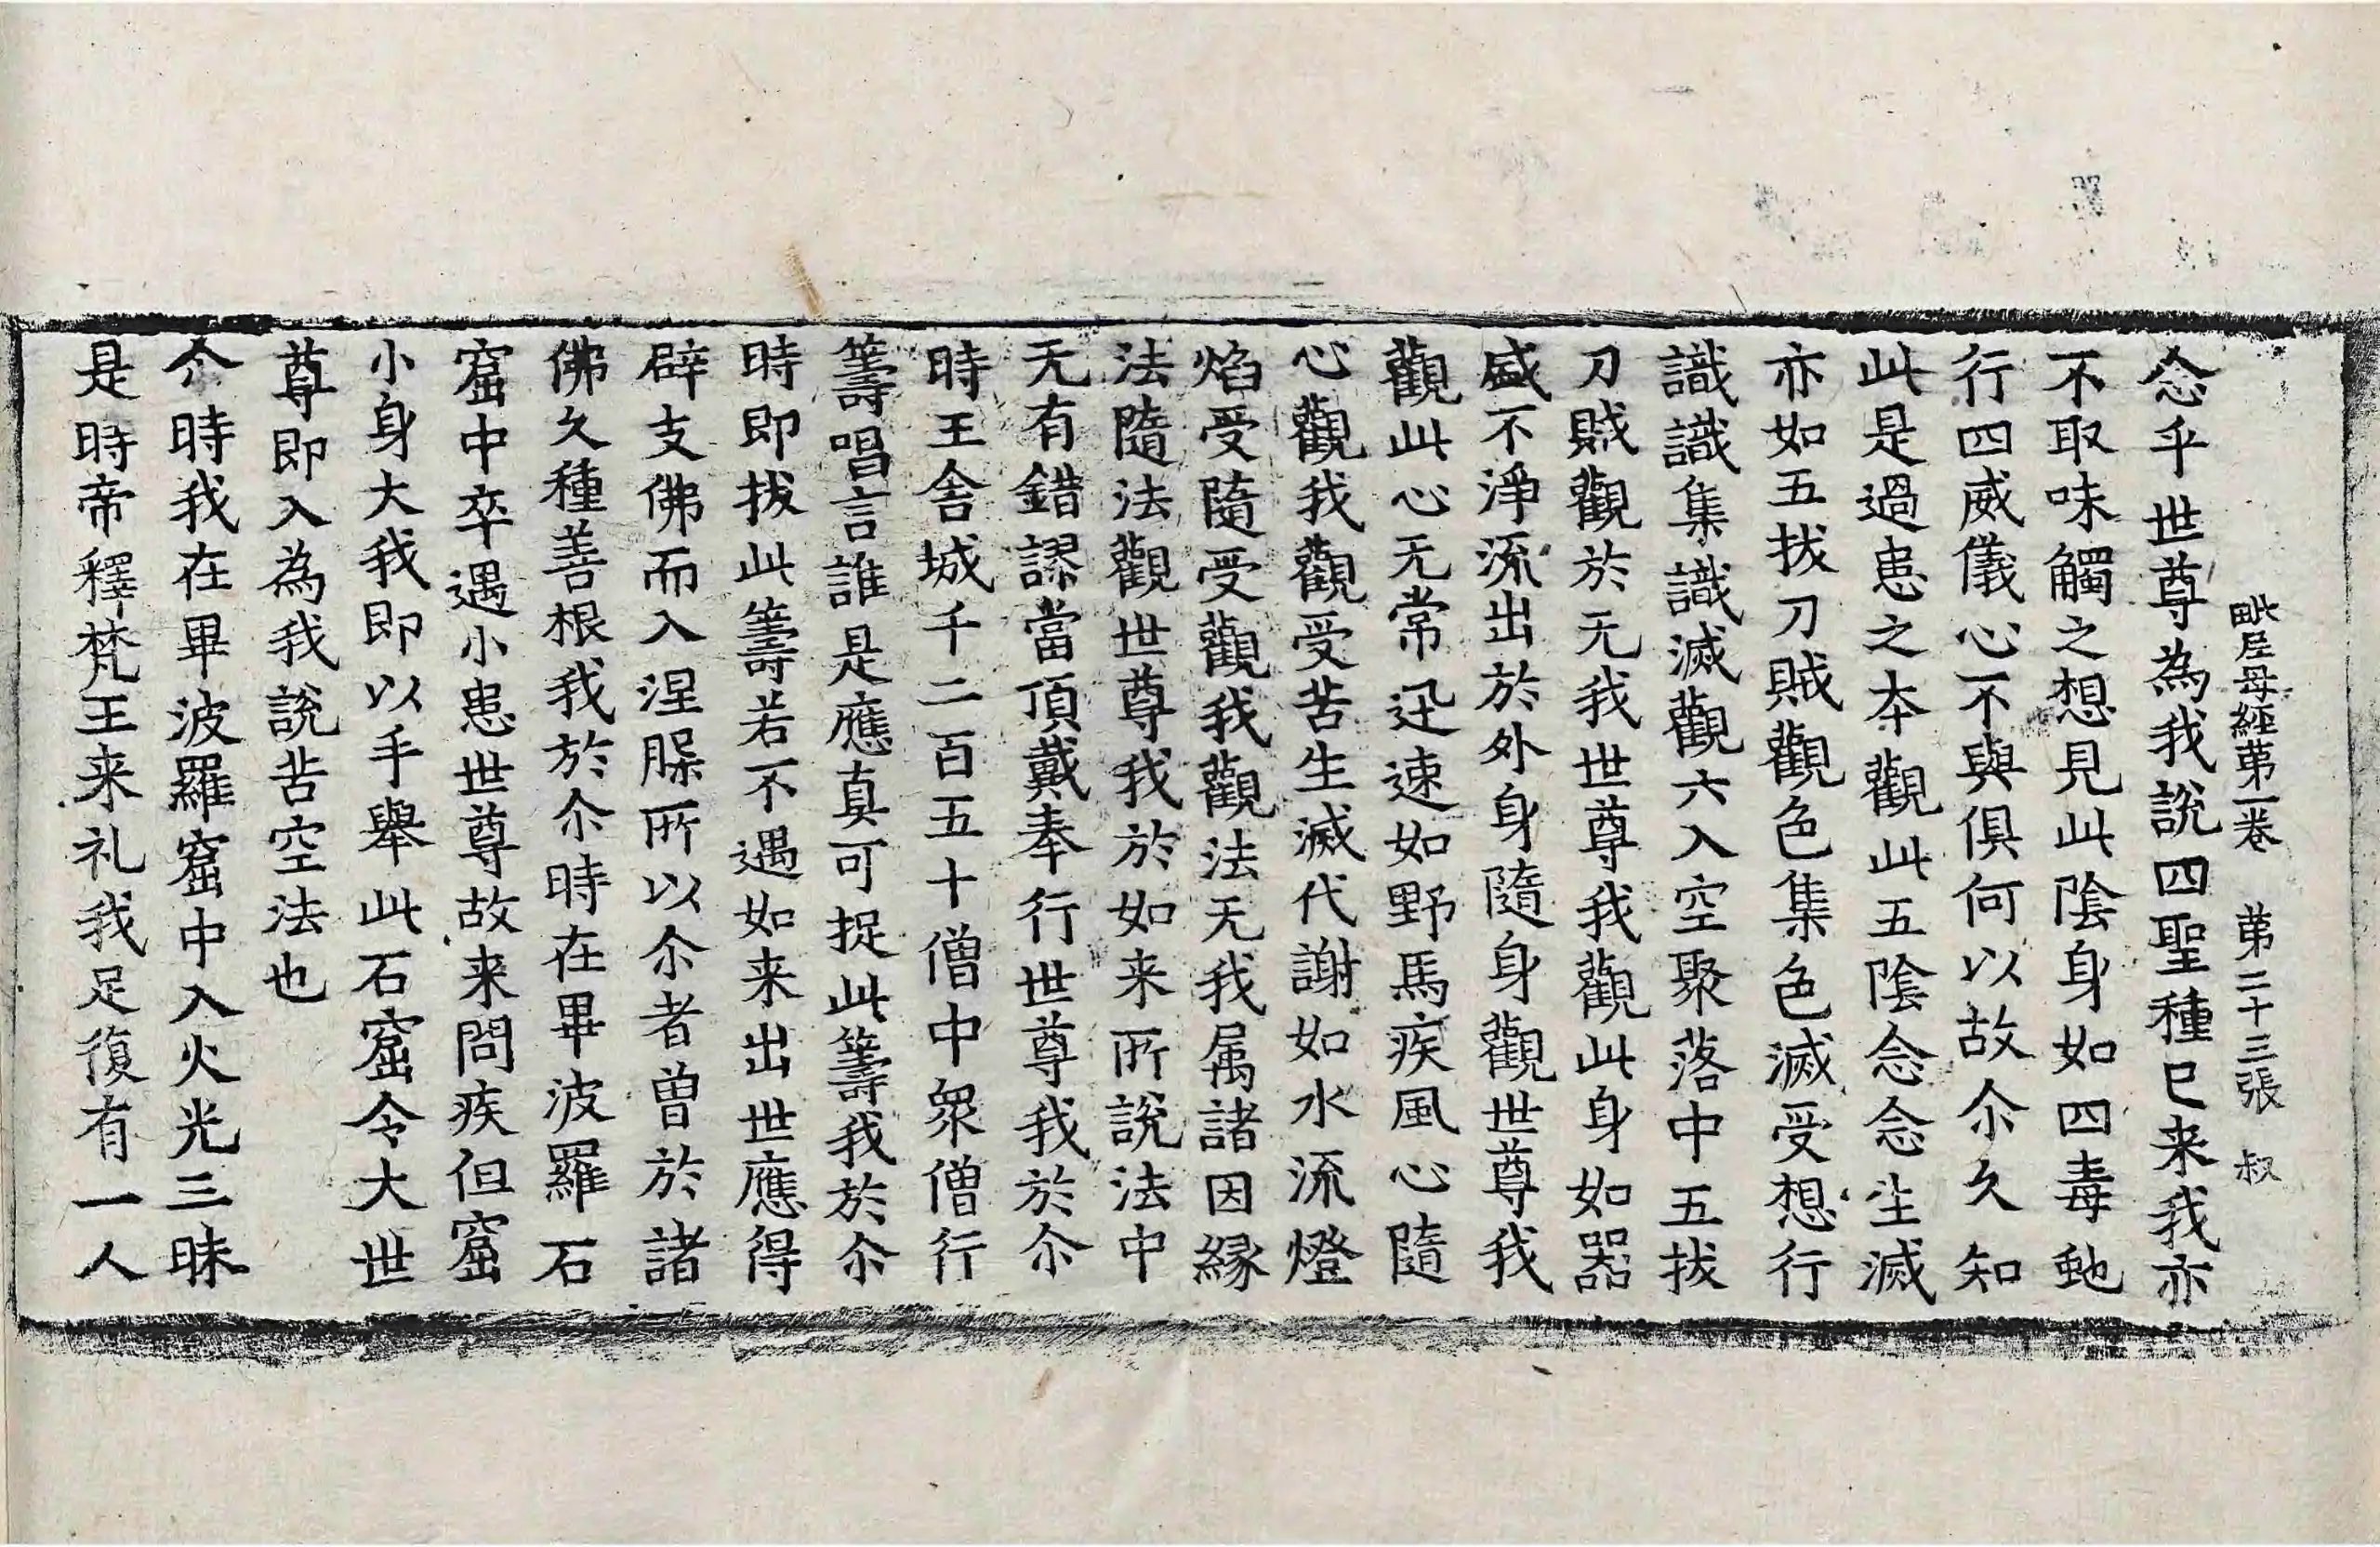 毗尼母經苐一卷　苐二十三張　叔
念乎世尊為我說四聖種已来我亦
不取味觸之想見此陰身如四毒虵
行四威儀心不與俱何以故尒久知
此是過患之夲觀此五陰念念生滅
亦如五拔刀賊觀色集色滅受想行
識識集識滅觀六入空聚落中五拔
刀賊觀於无我世尊我觀此身如器
盛不淨流出於外身隨身觀世尊我
觀此心无常迅速如野馬疾風心隨
心觀我觀受苦生滅代謝如水流燈
焰受隨受觀我觀法无我属諸因縁
法隨法觀世尊我於如来所說法中
无有錯謬當頂戴奉行世尊我於尒
時王舎城千二百五十僧中衆僧行
籌唱言誰是應真可捉此籌我於尒
時即拔此籌若不遇如来出世應得
辟支佛而入涅槃所以尒者曾於諸
佛久種善根我於尒時在畢波羅石
窟中卒遇小患世尊故来問疾但窟
小身大我即以手舉此石窟令大世
尊即入為我說苦空法也
尒時我在畢波羅窟中入火光三昧
是時帝釋梵王来礼我足復有一人